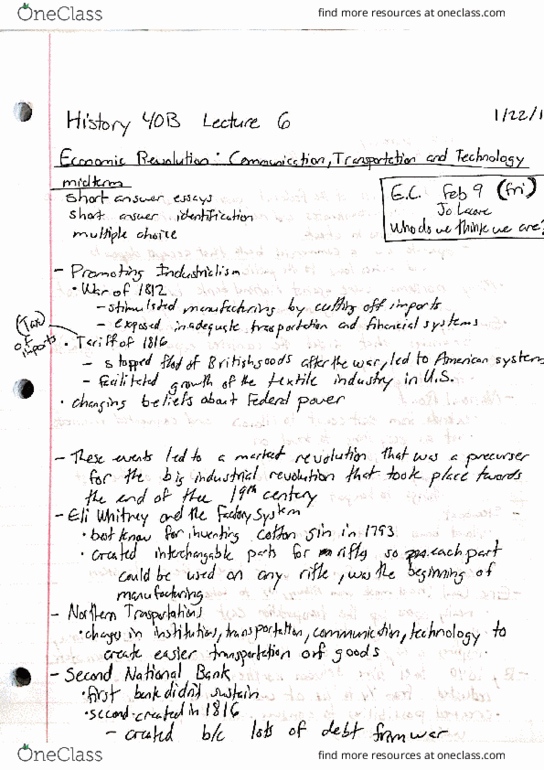 OneClass
find more resources at oneclass.com
History 40B Lecture 6
1/22/1
Economic Revolution: Communication, Transportation and Technology
midterm
short answer essays
short answer identification
multiple choice
E.C. Feb 9 (fri)
Who do we think we are?
- Promoting Industrialism
• War of 1812
- stimulated manufacturing by cutting off imports
- exposed inadequate trasportation and financial systems
(Tax of imports)
• Tariff of 1816
- stopped flod of British goods after the war, led to American systems
- facilitated growth of the textile industry in U.S.
• changing beliefs about Federal power
- These events led to a market revolution that was a precurser
for the big industrial revolution that took place towards
the end of the 19th century
- Eli Whitney and the Factory System
• best know for inventing cotton gin in 1793
• created interchangable parts for rifles so each part
could be used on any rifle, was the beginning of
manufacturing
- Northern Trasportations
• changes in institutions, transportation, communication, technology to
create easier transportation of goods
- Second National Bank
• first bank didn't sustain
• second created in 1816
- created b/c lots of debt from war
OneClass
find more resources at oneclass.com